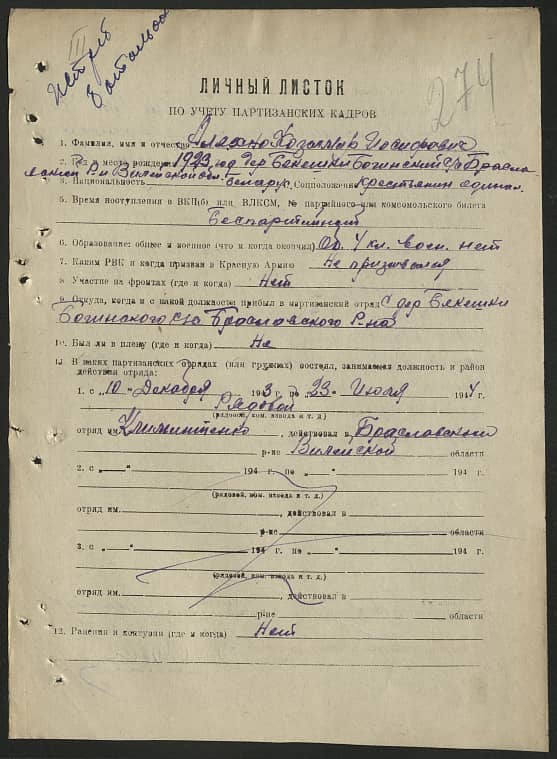 III
274
ЛИЧНЫЙ ЛИСТОК
ПО УЧЕТУ ПАРТИЗАНСКИХ КАДРОВ
1. Фамилия, имя и отчество Алехно Иосифович
2. Год и место рождения 1923 год дер Бекешки Богинский с/с Брасла
3. Национальность беларус, Соцположение Крестьянин единол.
5. Время поступления в ВКП(б) или ВЛКСМ, № партийного или комсомольского билета
Беспартийный
6. Образование: общее и военное (что и когда окончил) Об. 4 кл. воен. нет
7. Каким РВК и когда призван в Красную Армию Не призывался
8. Участие на фронтах (где и когда) Нет
9. Откуда, когда и с какой должности прибыл в партизанский отряд С дер Бекешки
Богинского с/с Брасловского р-на
10. Был ли в плену (где и когда) Не
11. В каких партизанских отрядах (или группах) состоял, занимаемая должность и район
действия отряда:
1. с „10„ Декабря 1943 г. по „23„ Июля 1944 г.
Рядовой
(рядовой, ком. взвода и т. д.)
отряд им. , действовал в Брасловский
р-не Вилейской области
2. с „—„ 194 г. по „ „ 194 г.
(рядовой, ком. взвода и т. д.)
отряд им. , действовал в
р-не области
3. с „—„ 194 г. по „ „ 194 г.
(рядовой, ком. взвода и т. д.)
отряд им. , действовал в
р-не области
12. Ранения и контузии (где и когда) Нет